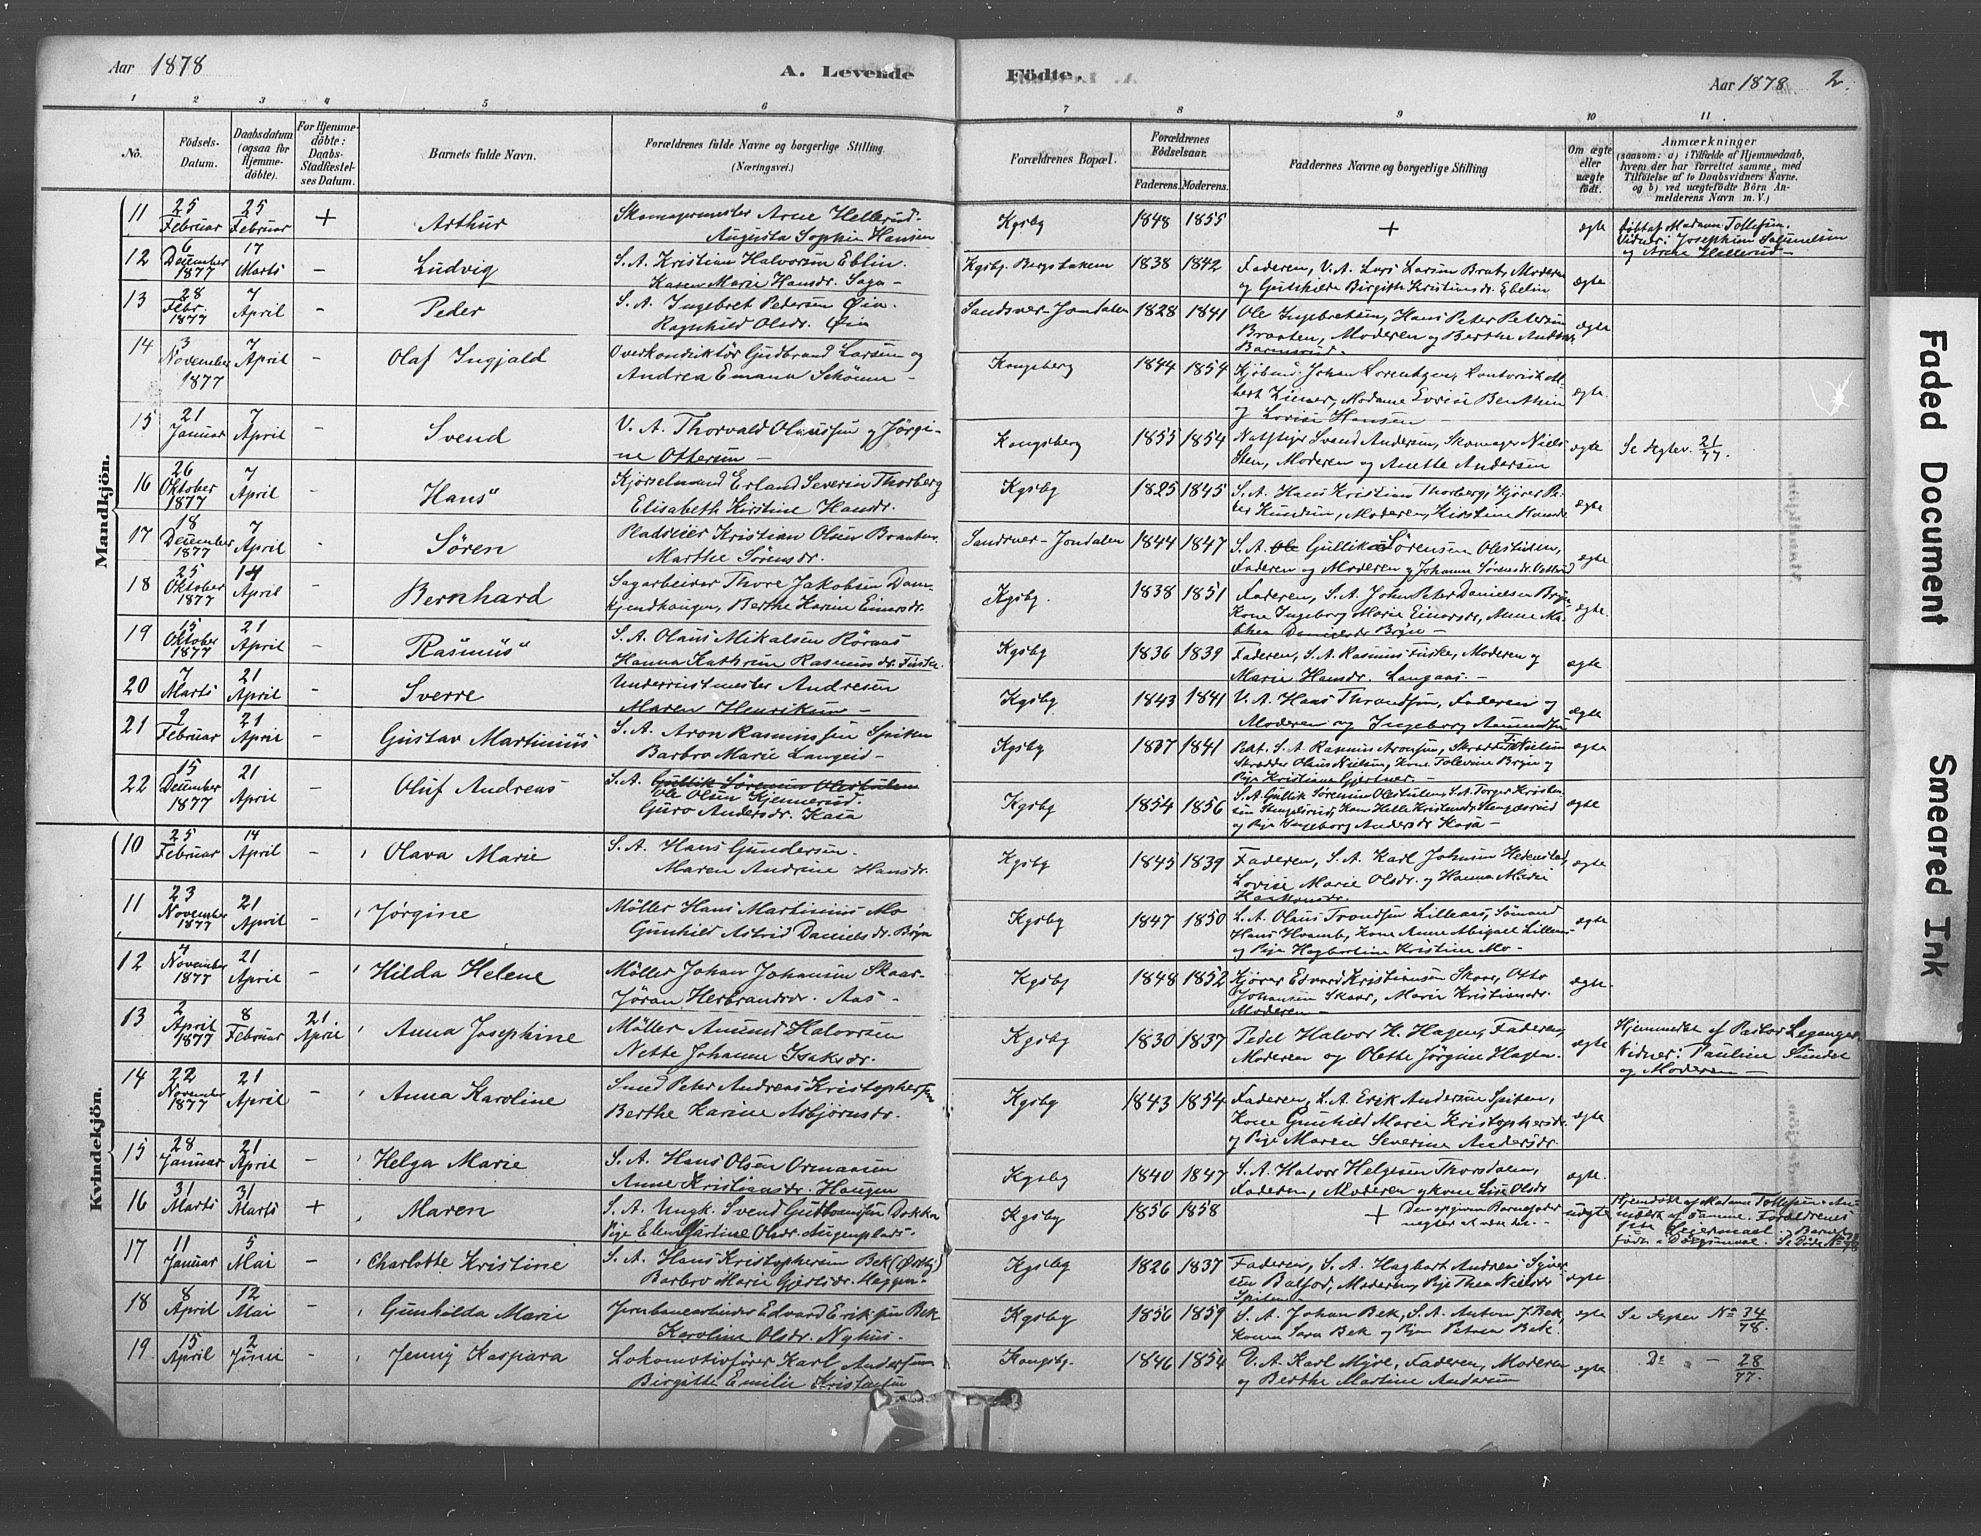 Aar 1878
A. Levende
Födte.
Aar 1878
2.
1 2 3 4 5 6 7 8 9 10 11
No.
Födsels-Datum.
Daabsdatum (ogsaa for Hjemme-döbte).
For Hjemme-döbte: Daabs-Stadfæstel-ses Datum.
Barnets fulde Navn.
Forældrenes fulde Navne og borgerlige Stilling. (Næringsvei.)
Forældrenes Bopæl.
Forældrenes Födselsaar.
Faderens. Moderens.
Faddernes Navne og borgerlige Stilling
Om ægte eller uægte födt.
Anmærkninger
(saasom: a) i Tilfælde af Hjemmedaab, hvem der har forrettet samme, med Tilföielse af to Daabsvidners Navne. og b) ved uægtefödte Börn An-melderens Navn m. V.)
Mandkjön.
11 25 Februar 25 Februar + Arthur Skomagermester Arne Hellerud. Augusta Sophie Hansen Kgsby 1848 1855 + ægte döbt af Madam Tollefsen. Vidner: Josephine og Arne Hellerud –
12 6 December 1877 17 Marts – Ludvig S. A. Kristian Halvorsen Eblin. Karen Marie Hansdr. Saga – Kgsby. 1838 1842 Faderen, V. A. Lars Larsen Braat, Moderen og Birgith Kristiansdr. Ebelin ægte
13 28 Febr. 1877 7 April – Peder S. A. Ingebret Pedersen Øia. Ragnhild Olsdr. Øia Sandsver-Jondalen 1828 1841 Ole Ingebretsen, Hans Peter Petersen Braaten, Moderen og Berthe ægte
14 3 November 1877 7 April – Olaf Ingjald Overkonduktör Gudbrand Larsen og Andrea Emana – Kongsberg 1844 1854 Johan Lorentzen, og Lovise Hansen – ægte
15 21 Januar 7 April – Svend V. A. Thorvald Olaussen og Jørgi-ne Ottersen – Kongsberg 1855 1854 Svend Andersen, Skomager Niels Sten, Moderen og Anette Andersen ægte Se 21/77.
16 26 Oktober 1877 7 April – Hans Kjörselmand Erland Severin Thorberg Elisabeth Kirstine Hansdr. Kgsby 1825 1845 S. A. Hans Kristian Thorberg, Kjörer Pe-ter Knudsen, Moderen, Kirstine ægte
17 18 December 1877 7 April – Søren Pladseier Kristian Olsen Braaten. Marthe Sørensdr. Sandsver-Jondalen 1844 1847 S. A. Ole Gullik Sørensen Olestulen, Faderen og Moderen og Johanne Sørensdr. ægte
18 25 Oktober 1877 14 April – Bernhard Sagarbeider Thore Jakobsen Dam-kjendhaugen, Berthe Karine Einarsdr. Kgsby. 1838 1851 Faderen, S. A. John Peter Danielsen Bryn Kone Ingeborg Marie Einarsdr, Anne Ma-thea Danielsdr Bryn – ægte
19 15 Oktober 1877 21 April – Rasmus S. A. Olaus Mikalsen Röraas Hanna Kathrine Rasmusdr. Fiske. Kgsby 1836 1839 Faderen, S. A. Rasmus Fiske, Moderen og Marie Hansdr. Langaas – ægte
20 7 Marts 21 April – Sverre Andresen Maren Henriksen – Kgsby 1843 1841 V. A. Hans Throndsen, Faderen og Moderen og Ingeborg Amundsen ægte
21 9 Februar 21 April – Gustav Martinius S. A. Aron Rasmussen Spiken Barbro Marie Langeid – Kgsby 1837 1841 S. A. Rasmus Aronsen, Skrædder Olaus Nielsen, Kone Tolevine Bryn og Pige Kristiane Gjertner – ægte
22 15 December 1877 21 April – Oluf Andreas S. A. Gullik Sørensen Olestulen Ole Olsen Kjennerud. Guro Andersdr. Kasa Kgsby 1854 1856 S. A. Gullik Sørensen Olestulen, S. A. Torger Kristen-sen Stengelsrud, Kone Helle Kristensdr Stengelsrud og Pige Ingeborg Andersdr Kasa – ægte
Kvindekjön.
10 25 Februar 14 April – Olava Marie S. A. Hans Gundersen. Maren Andrine Hansdr. Kgsby 1845 1839 Faderen, S. A. Karl Johnsen Hedenstad, Lovise Marie Olsdr. og Hanna Marie ægte
11 23 November 1877 21 April – Jørgine Möller Hans Martinius Mo Gunhild Astrid Danielsdr. Bryn Kgsby 1847 1850 S. A. Olaus Trondsen Lilleaas, Sömand Hans Hvamb, Kone Anne Abigael og Pige Hagbartine Kristine Mo – ægte
12 4 November 1877 21 April – Hilda Helene Möller Johan Johansen Skaar. Jöran Herbrandsdr. Aas – Kgsby 1848 1852 Kjörer Edvard Kristiansen Skaar, Otto Johansen Skaar, Marie Kristiansdr. Moderen – ægte.
13 2 April 1877 8 Februar 21 April Anna Josephine Möller Amund Halvorsen Nette Johanne Isaksdr. Kgsby 1830 1837 Pedel Halvor H. Hagen, Faderen, Moderen og Olette Jörgine Hagen. ægte Hjemmedbt af Pastor Leganger Vidner: Pauline Sundet og Moderen –
14 22 November 1877 21 April – Anna Karoline Smed Peter Andreas Kristophersen Berthe Karine Asbjörnsdr. Kgsby 1843 1854 Faderen, S. A. Erik Andersen Spiten, Kone Gunhild Marie Kristophersdr. og Pige Maren Severine Andersdr ægte
15 28 Januar 21 April – Helga Marie S. A. Hans Olsen Ormaasen Anne Kristiansdr. Haugen Kgsby 1840 1847 S. A. Halvor Helgesen Thorsdalen, Faderen, Moderen og kone Lise Olsdr ægte.
16 31 Marts 31 Marts + Maren S. A. Ungk. Svend Gulbrandsen Dokka Pige Ellen Gurtine Olsdr. Augenplads. Kgsby 1856 1858 + Den opgivne Barnefader negter at være det. – uægte Hjemdöbt af Madam Tollefsen. An-meldt af samme. Forældrenes 1ste Leiermaal. Barnet
17 11 Januar 5 Mai – Charlotte Kristine S. A. Hans Kristophersen Bek (Østby) Barbro Marie Gjertsdr. Kgsby 1826 1837 Faderen, S. A. Hagbart Andreas Balfod, Moderen, Pige Thea Nielsdr Spiten ægte.
18 8 April 12 Mai – Gunhilda Marie Jernbanearbeider Edvard Eriksen Bek Karoline Olsdr. Nyhus. Kgsby 1856 1859 S. A. Johan Bek, S. A. Anton J. Bek, Kone Sara Bek og Pige Petrea Bek. ægte Se No 24/78.
19 15 April 2 Juni – Jenny Kaspara Lokomotivförer Karl Andersen Birgitte Emilie Kristensen Kongsb. 1846 1854 V. A. Karl Myre, Faderen, Moderen og Berthe Martine Andersen ægte Do – 28/77.
Faded Document
Smeared Ink